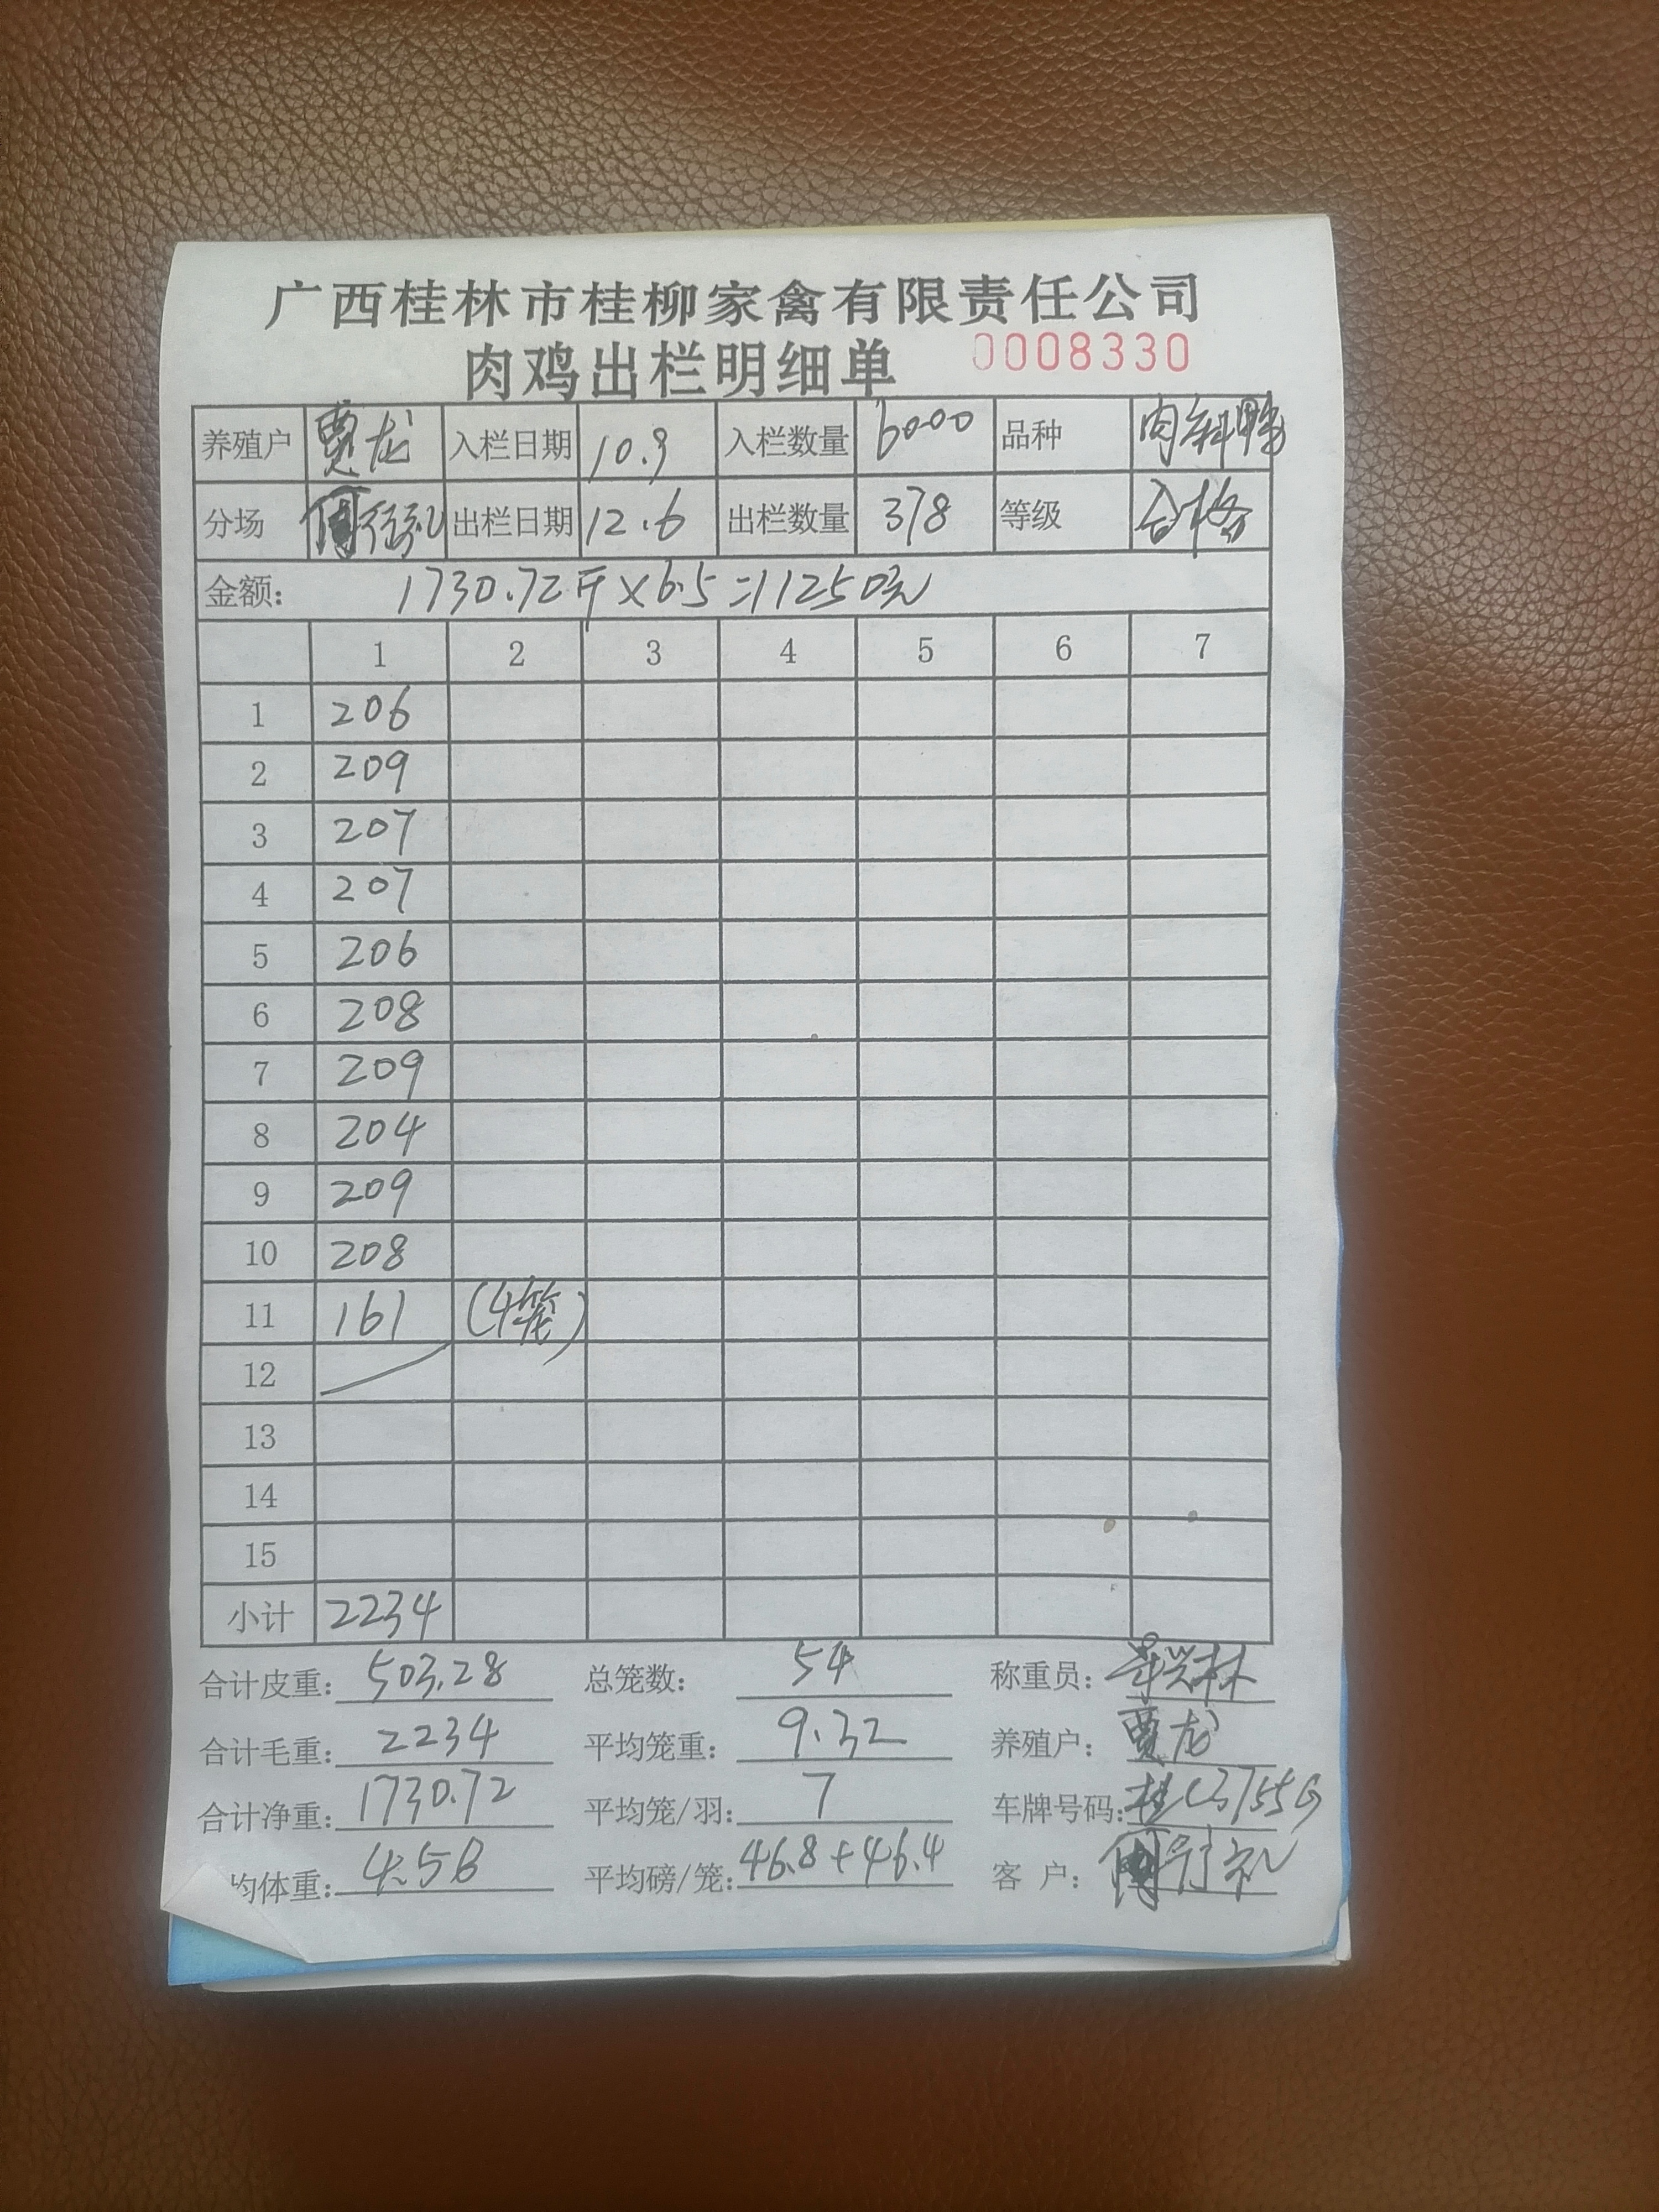 广西桂林市桂柳家禽有限责任公司
肉鸡出栏明细单 0008330
养殖户 贾龙 入栏日期 10.9 入栏数量 6000 品种 肉
分场 出栏日期 12.6 出栏数量 378 等级 合格
金额: 1730.72斤×6.5=11250元
1 2 3 4 5 6 7
1 206
2 209
3 207
4 207
5 206
6 208
7 209
8 204
9 209
10 208
11 161 (4笼)
12
13
14
15
小计 2234
合计皮重: 503.28 总笼数: 54 称重员:
合计毛重: 2234 平均笼重: 9.32 养殖户: 贾龙
合计净重: 1730.72 平均笼/羽: 7 车牌号码: 桂C3755G
均体重: 4.58 平均磅/笼: 46.8+46.4 客户: